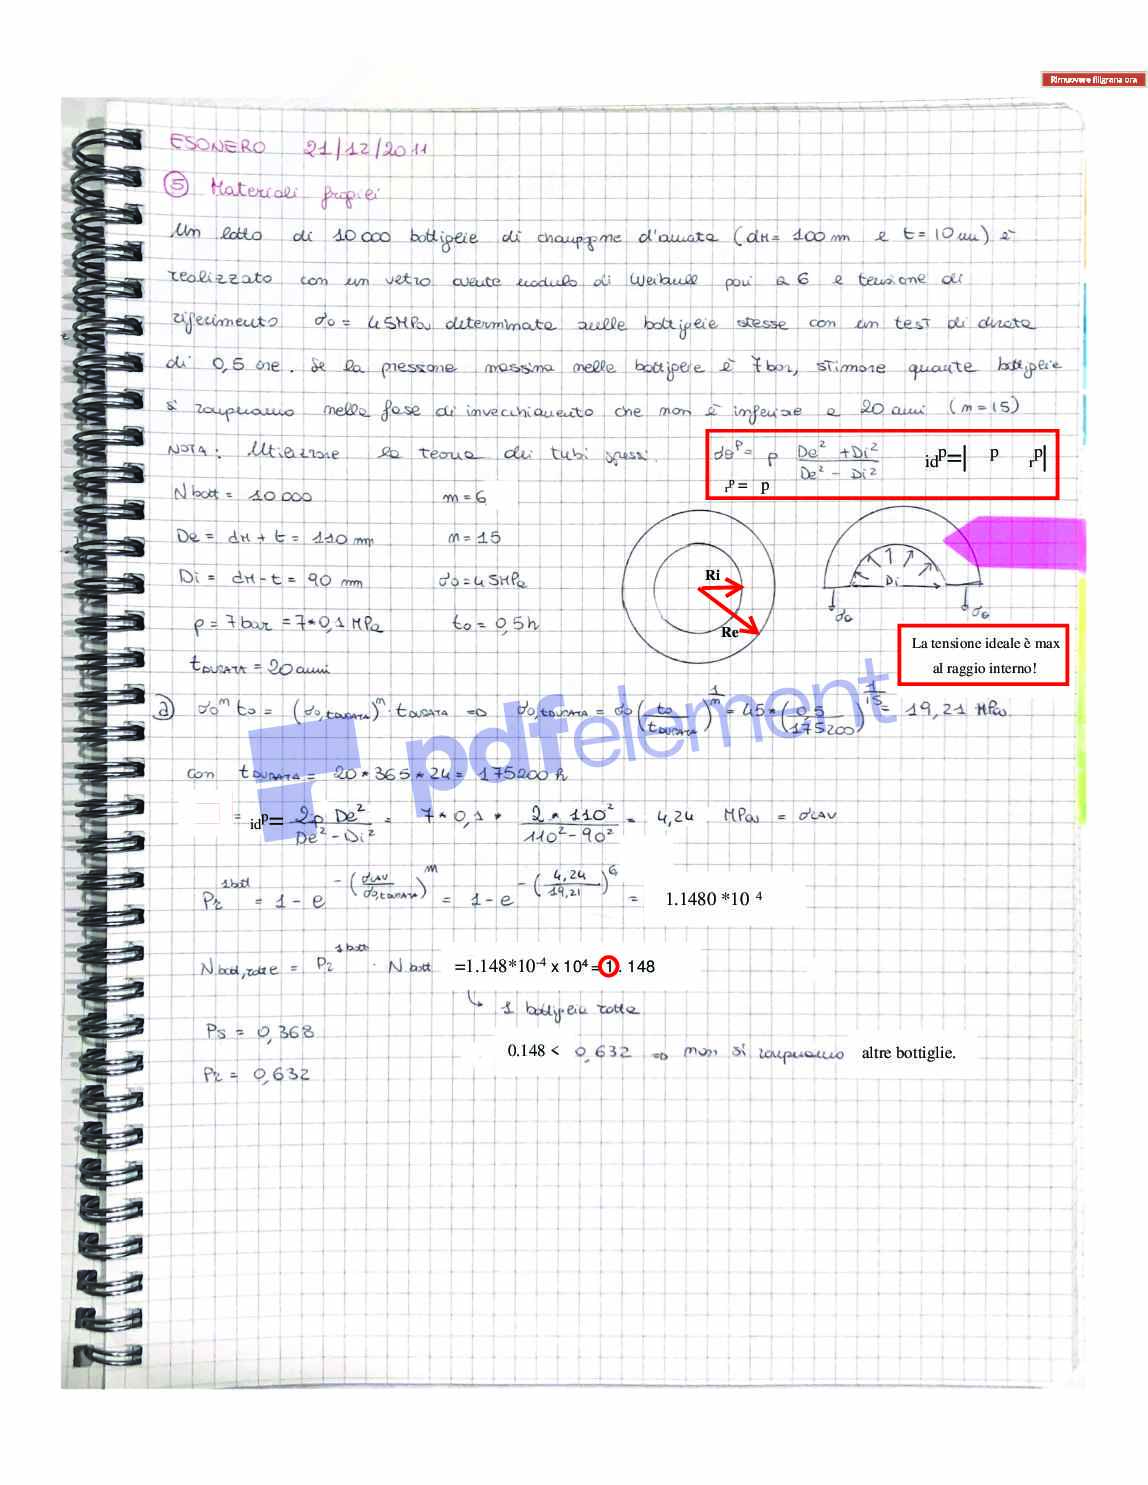 Rimuovere filigrana ora
ESONERO 21/12/2011
⑤ Materiali fragili
Un lotto di 10000 bottiglie di champagne d'annata (dM= 100 mm e t=10mm) è
realizzato con un vetro avente modulo di Weibull pari a 6 e tensione di
riferimento σ0= 45MPa determinata sulle bottiglie stesse con un test di durata
di 0,5 ore. Se la pressione massima nelle bottiglie è 7bar, stimare quante bottiglie
si rompono nella fase di invecchiamento che non è inferiore a 20 anni (n=15)
NOTA: Utilizzare la teoria dei tubi spessi.
σθᴾ= p (De² +Di²)/(De² - Di²) idᵖ=| p rᵖ|
rᵖ = p
N bott = 10000 m=6
De = dM + t = 110 mm n=15
Di = dM-t = 90 mm σ0=45MPa
p = 7bar = 7*0,1 MPa t0 = 0,5h
tDURATA = 20 anni
Ri
Re
Di
σθ σθ
La tensione ideale è max
al raggio interno!
a) σ0ⁿ t0 = (σ0,tDURATA)ⁿ · tDURATA => σ0,tDURATA = σ0 (t0/tDURATA)^(1/n) = 45*(0,5/175200)^(1/15) = 19,21 MPa
con tDURATA = 20*365*24= 175200 h
= idᵖ= 2p De²/(De² - Di²) = 7*0,1* (2*110²)/(110²-90²) = 4,24 MPa = σLAV
Pr^1bott = 1-e^-(σLAV/σ0,tDURATA)^m = 1-e^-(4,24/19,21)^6 = 1.1480 *10 ⁴
N bott,rotte = Pr^1bott · N bott =1.148*10⁻⁴ x 10⁴ = 1. 148
↳ 1 bottiglia rotta
Ps = 0,368
0.148 < 0,632 => non si rompono altre bottiglie.
Pr = 0,632
pdfelement